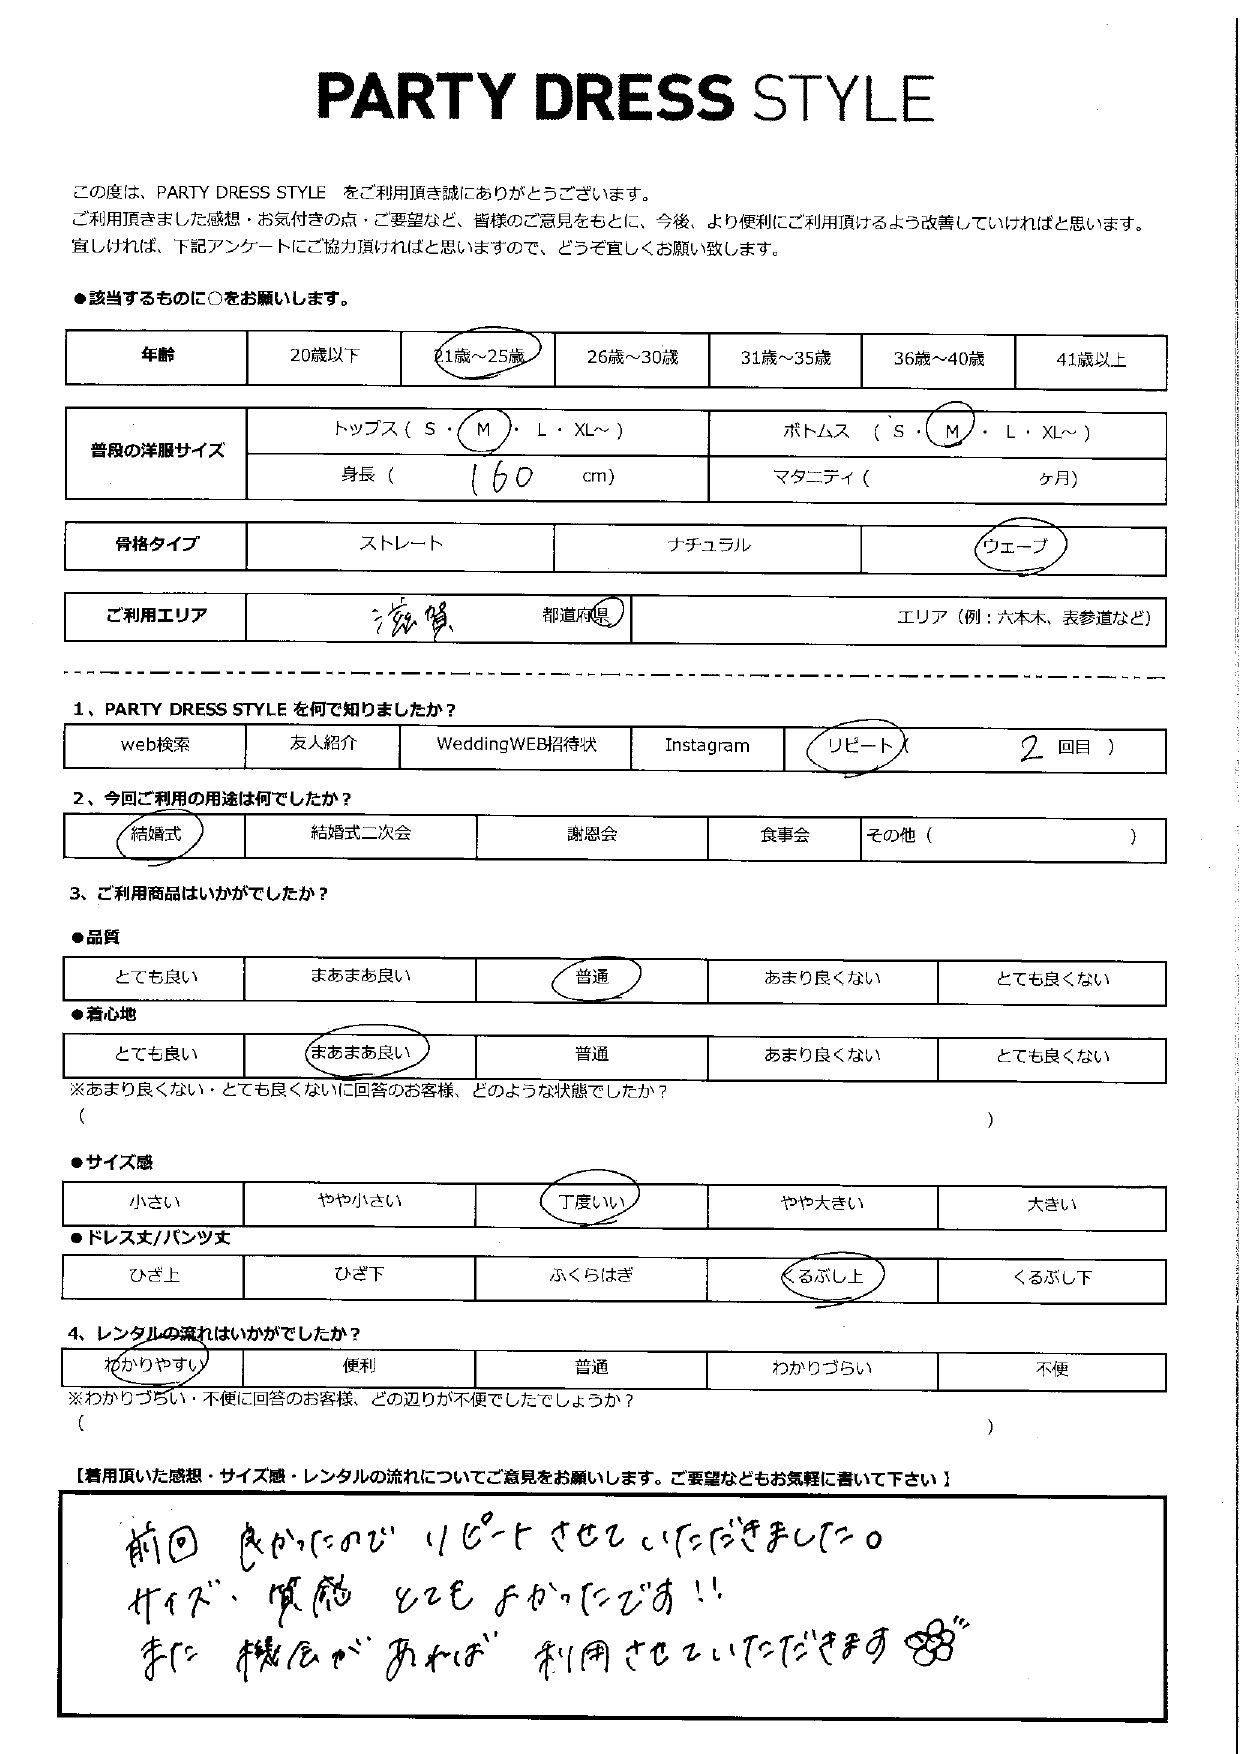 PARTY DRESS STYLE
この度は、PARTY DRESS STYLE をご利用頂き誠にありがとうございます。
ご利用頂きました感想・お気付きの点・ご要望など、皆様のご意見をもとに、今後、より便利にご利用頂けるよう改善していければと思います。
宜しければ、下記アンケートにご協力頂ければと思いますので、どうぞ宜しくお願い致します。
●該当するものに○をお願いします。
年齢 20歳以下 21歳～25歳 26歳～30歳 31歳～35歳 36歳～40歳 41歳以上
普段の洋服サイズ トップス ( S ・ M ・ L ・ XL～ ) ボトムス ( S ・ M ・ L ・ XL～ )
身長 ( 160 cm) マタニティ ( ヶ月)
骨格タイプ ストレート ナチュラル ウェーブ
ご利用エリア 滋賀 都道府県 エリア（例：六本木、表参道など）
1、PARTY DRESS STYLE を何で知りましたか？
web検索 友人紹介 WeddingWEB招待状 Instagram リピート ( 2 回目 )
2、今回ご利用の用途は何でしたか？
結婚式 結婚式二次会 謝恩会 食事会 その他 ( )
3、ご利用商品はいかがでしたか？
●品質
とても良い まあまあ良い 普通 あまり良くない とても良くない
●着心地
とても良い まあまあ良い 普通 あまり良くない とても良くない
※あまり良くない・とても良くないに回答のお客様、どのような状態でしたか？
( )
●サイズ感
小さい やや小さい 丁度いい やや大きい 大きい
●ドレス丈/パンツ丈
ひざ上 ひざ下 ふくらはぎ くるぶし上 くるぶし下
4、レンタルの流れはいかがでしたか？
わかりやすい 便利 普通 わかりづらい 不便
※わかりづらい・不便に回答のお客様、どの辺りが不便でしたでしょうか？
( )
【着用頂いた感想・サイズ感・レンタルの流れについてご意見をお願いします。ご要望などもお気軽に書いて下さい】
前回 良かったので リピートさせていただきました。
サイズ・質感 とてもよかったです!!
また 機会が あれば 利用させていただきます